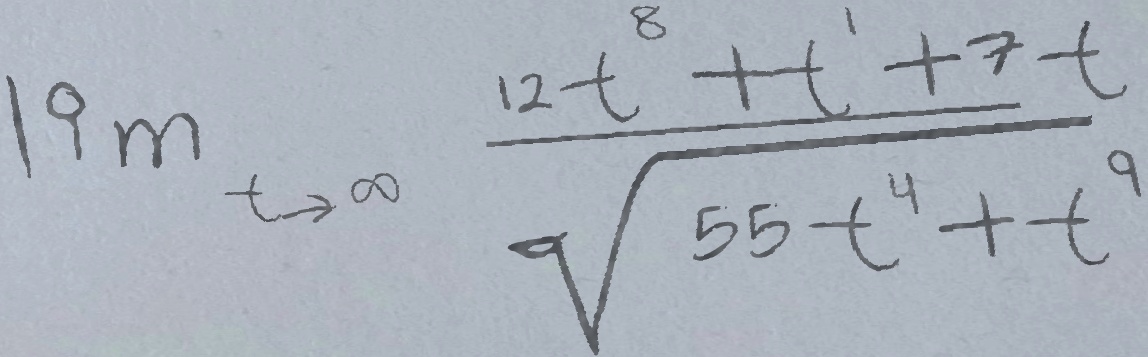 lim t→∞ (12t^8 + t^1 + 7t) / √(55t^4 + t^9)